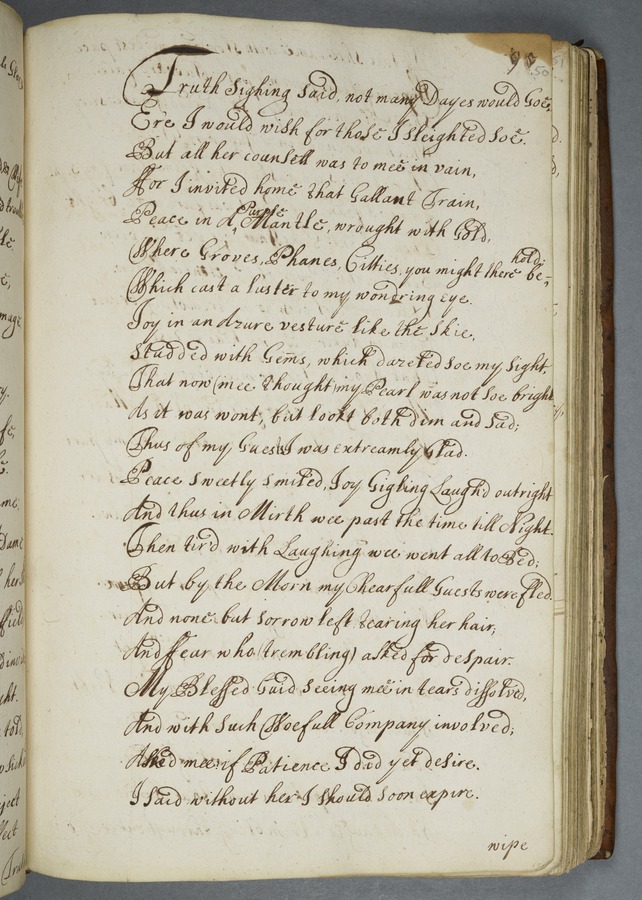 90
50
Truth sighing said, not many Dayes would Goe,
Ere I would wish for those I sleighted soe.
But all her counsell was to mee in vain,
ffor I invited home that Gallant Train,
Purple
Peace in A, Mantle, wrought with Gold,
hold:
Where Groves, Phanes, Citties, you might there be-
Which cast a luster to my wondring eye.
Joy in an Azure vesture like the skie,
Studded with Gems, which dazeled soe my sight
That now (mee thought) my Pearl was not soe bright
As it was wont, but look't both dim and sad;
Thus of my Guests I was extreamly glad.
Peace sweetly smiled, Joy Gigling Laugh'd outright
And thus in Mirth wee past the time till Night.
Then tir'd with Laughing wee went all to Bed;
But by the Morn my Chearfull Guests were ffled.
And none but sorrow left tearing her hair,
And ffear who (trembling) asked for despair.
My Blessed Guid seeing mee in tears dissolved,
And with such Woefull Company involved;
Asked mee if Patience I did yet desire.
I said without her I should soon expire.
wipe